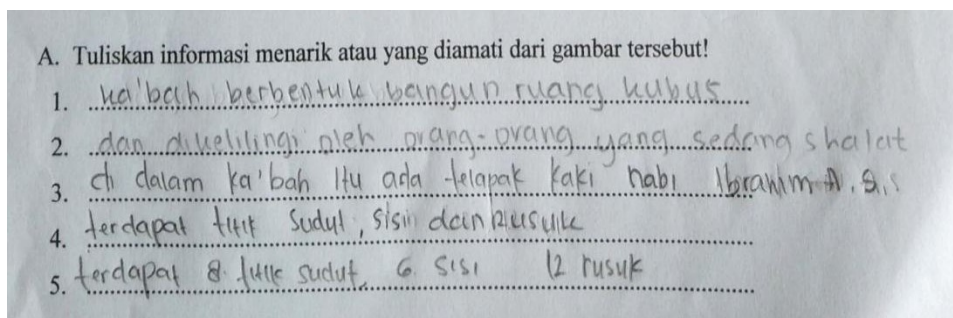 A. Tuliskan informasi menarik atau yang diamati dari gambar tersebut!
1. ka'bah berbentuk bangun ruang kubus
2. dan dikelilingi oleh orang-orang yang sedang shalat
3. di dalam ka'bah Itu ada telapak kaki nabi Ibrahim A.S.
4. terdapat titik sudut, sisi dan Rusuk
5. terdapat 8 titik sudut, 6 sisi 12 rusuk